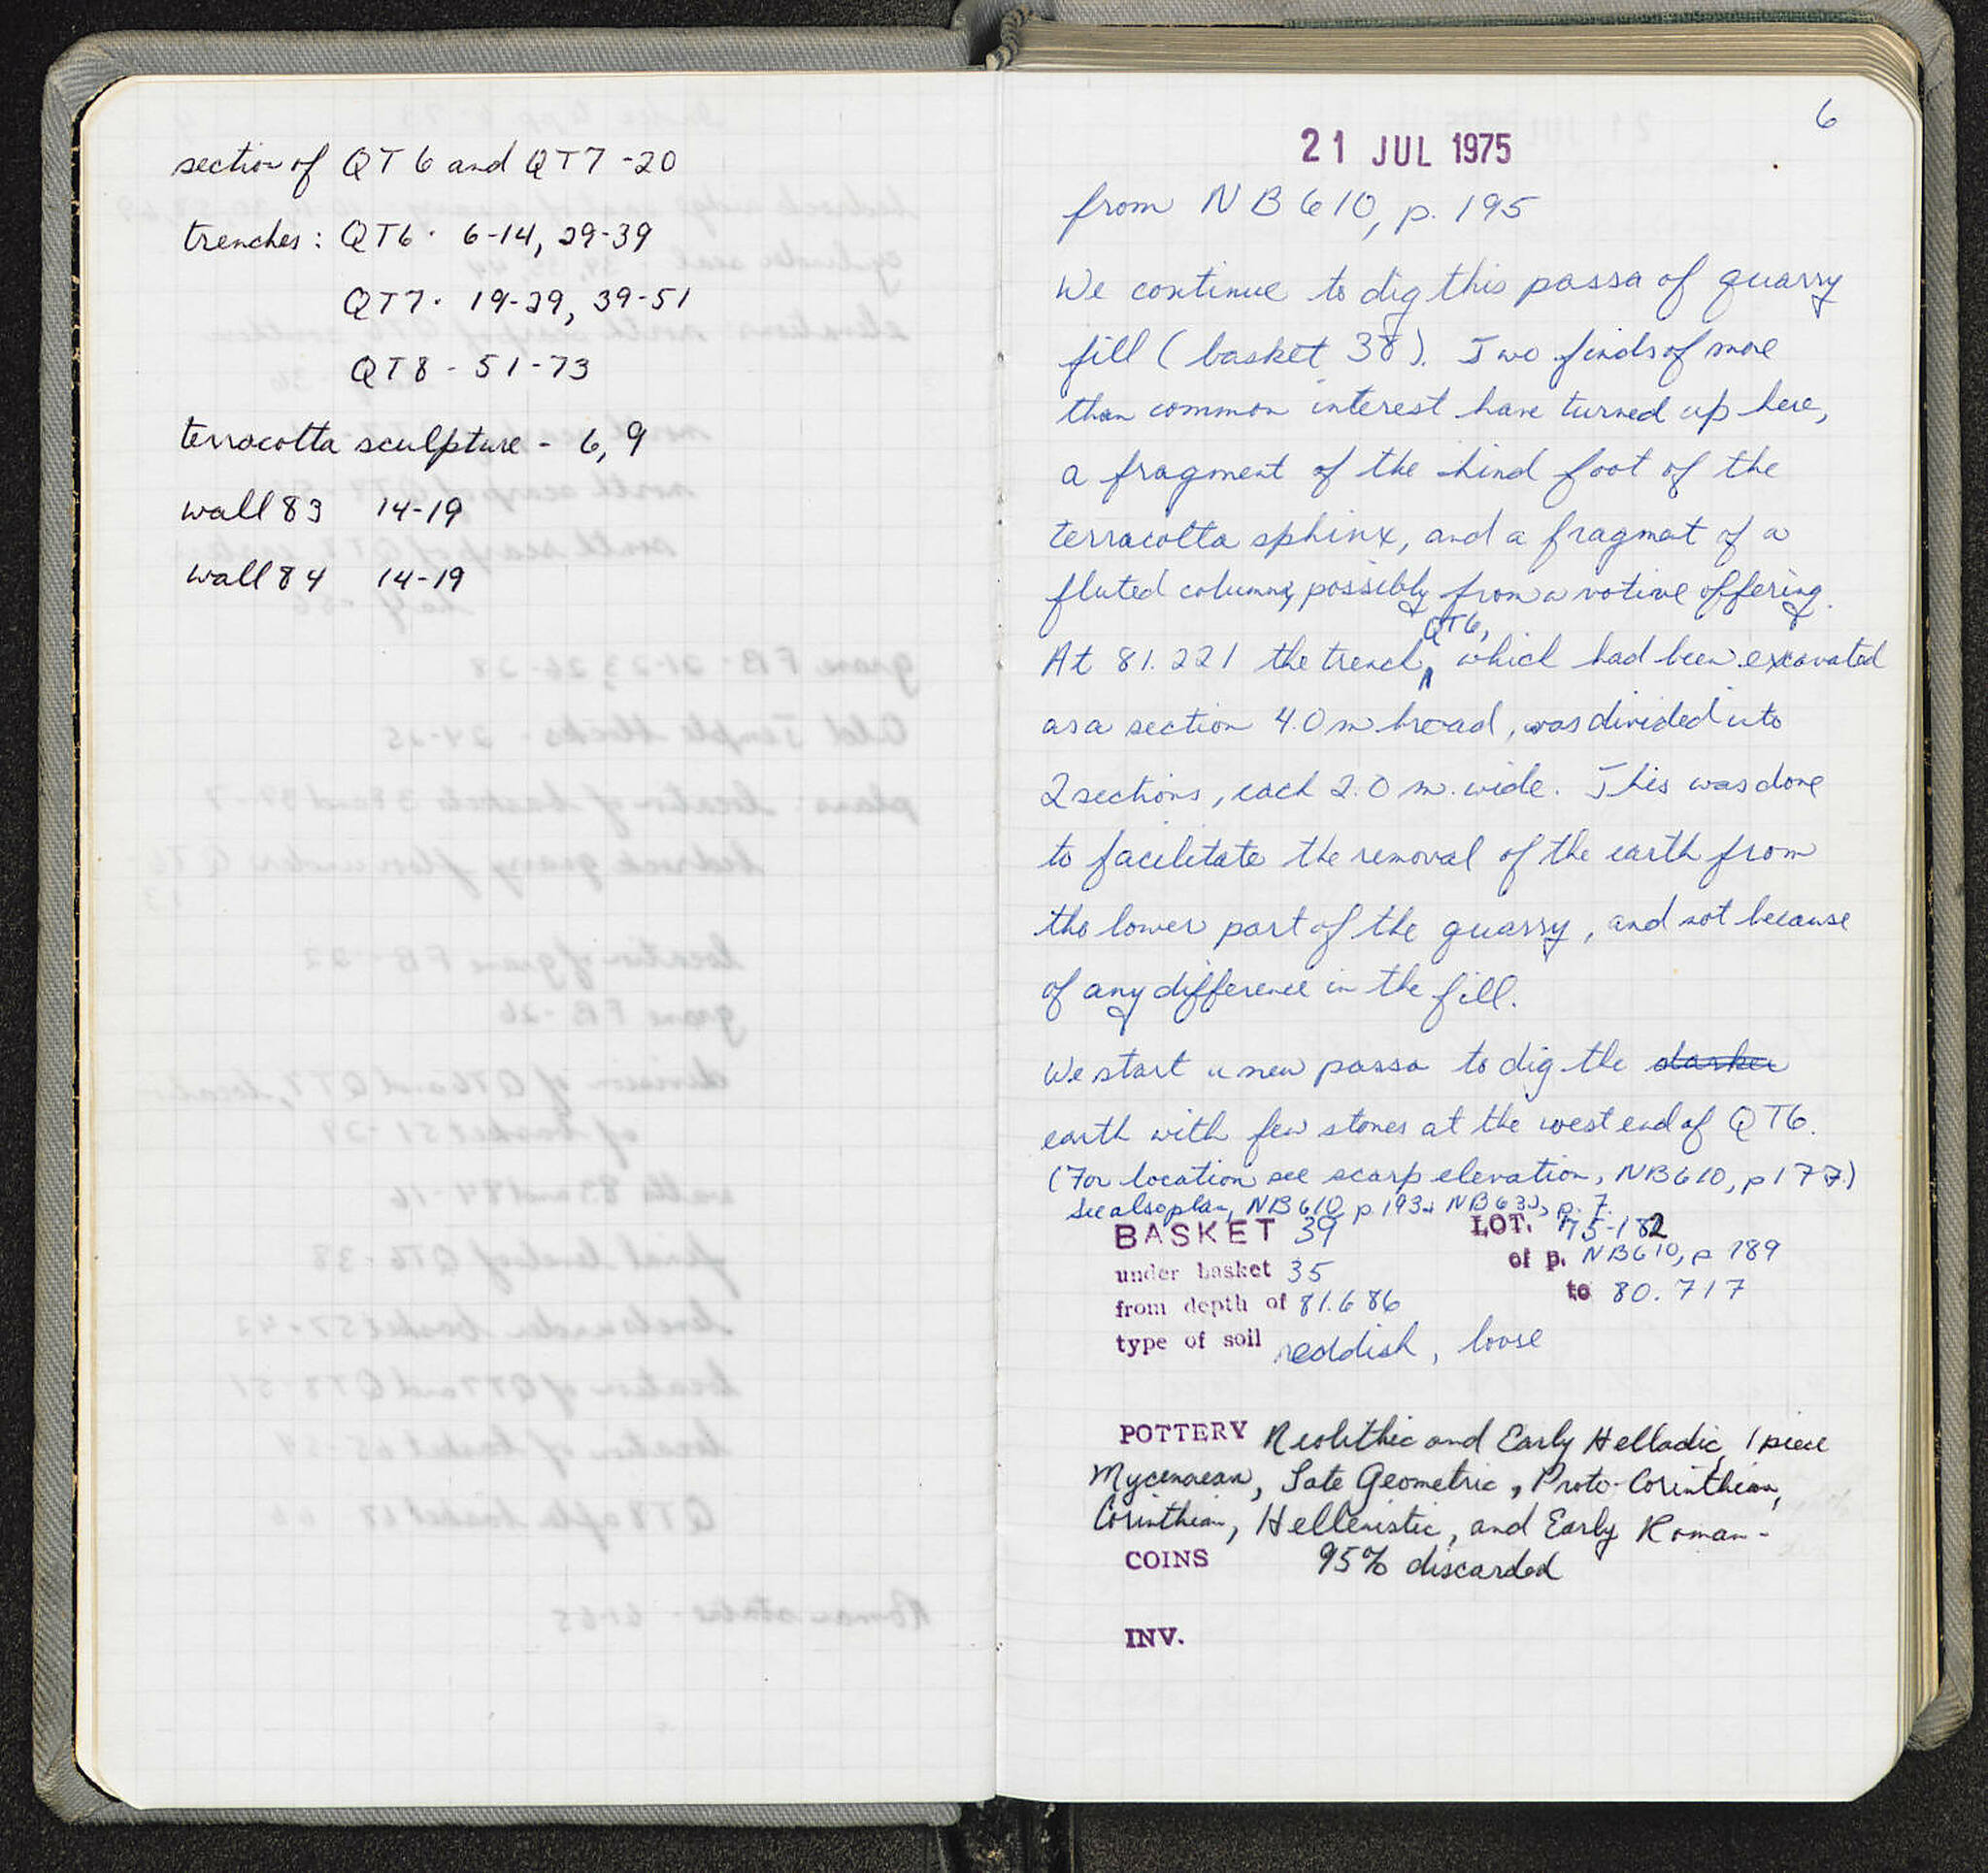 section of QT6 and QT7 - 20
trenches: QT6 · 6-14, 29-39
QT7 · 19-29, 39-51
QT8 - 51-73
terracotta sculpture - 6, 9
wall 83 14-19
wall 84 14-19
6
21 JUL 1975
from NB610, p. 195
We continue to dig this passa of quarry
fill (basket 38). Two finds of more
than common interest have turned up here,
a fragment of the hind foot of the
terracotta sphinx, and a fragment of a
fluted column, possibly from a votive offering.
QT6,
At 81.221 the trench, which had been excavated
as a section 4.0 m broad, was divided into
2 sections, each 2.0 m. wide. This was done
to facilitate the removal of the earth from
the lower part of the quarry, and not because
of any difference in the fill.
We start a new passa to dig the darker
earth with few stones at the west end of QT6.
(For location see scarp elevation, NB610, p 177.)
See also plan, NB610 p. 193; NB632, p. 7.
BASKET 39 LOT. 75-182
of p. NB610, p 189
under basket 35
from depth of 81.686 to 80.717
type of soil reddish, loose
POTTERY Neolithic and Early Helladic, 1 piece
Mycenaean, Late Geometric, Proto-Corinthian,
Corinthian, Hellenistic, and Early Roman -
COINS 95% discarded
INV.